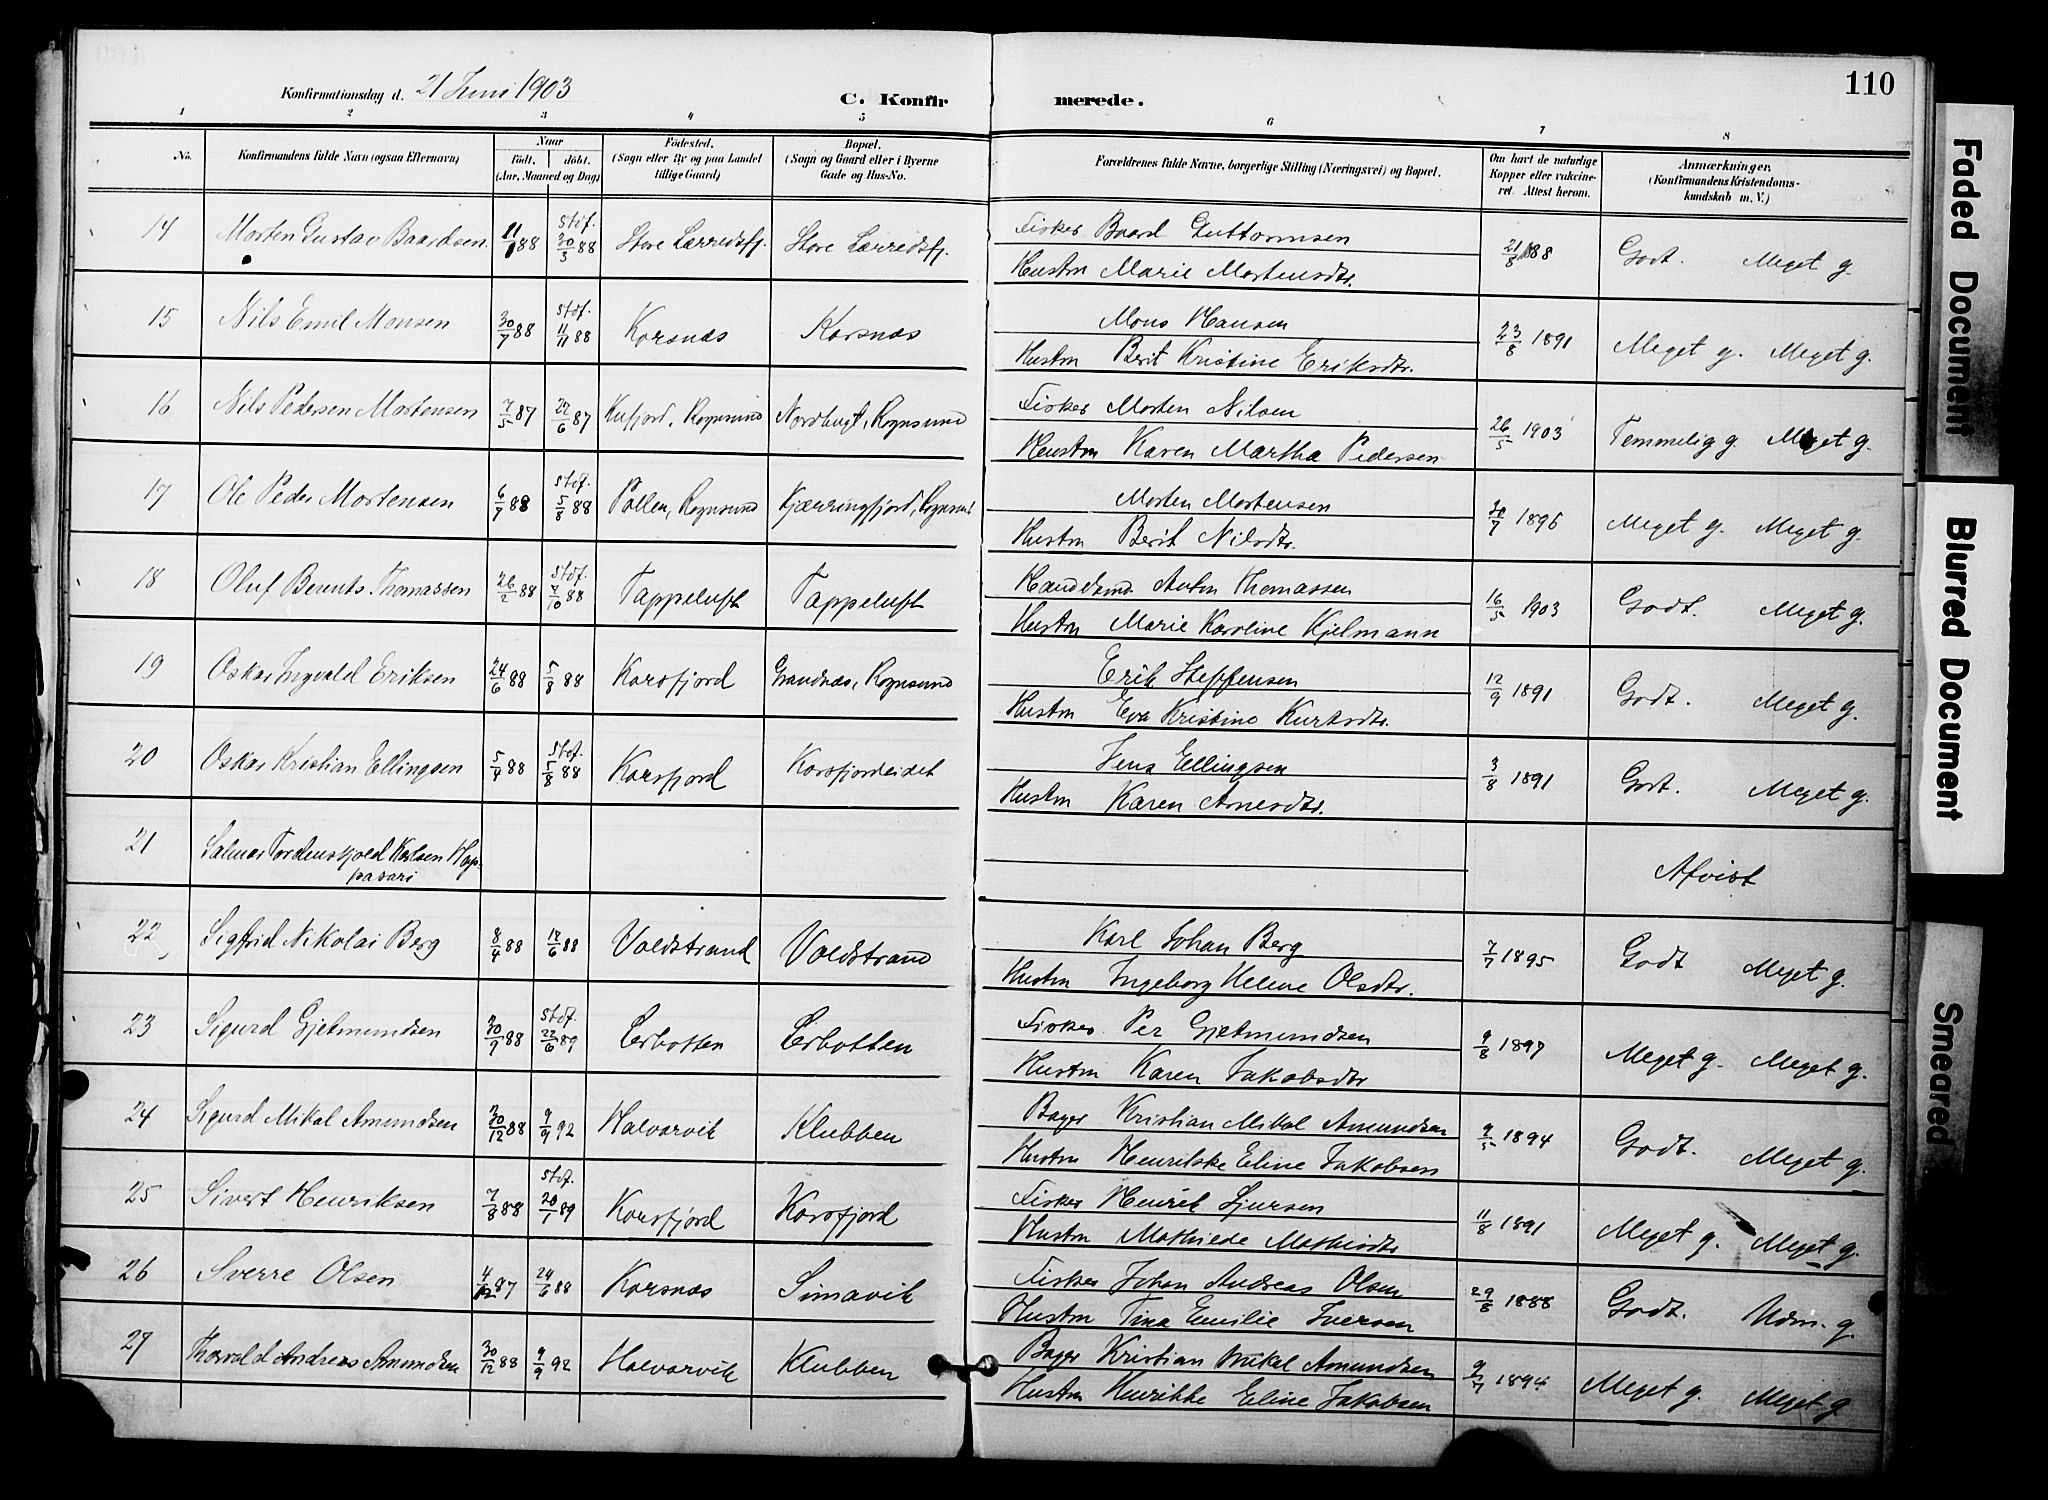 110
Konfirmationsdag d. 21 Juni 1903
C. Konfirmerede.
1 2 3 4 5 6 7 8
No. | Konfirmandens fulde Navn (ogsaa Efternavn) | Naar født, døbt. (Aar, Maaned og Dag) | Fødested. (Sogn eller By og paa Landet tillige Gaard) | Bopæl. (Sogn og Gaard eller i Byerne Gade og Hus-No. | Forældrenes fulde Navne, borgerlige Stilling (Næringsvei) og Bopæl. | Om havt de naturlige Kopper eller vakcineret. Attest herom. | Anmærkninger. (Konfirmandens Kristendomskundskab m. V.)
14 Morten Gustav Baardsen 11/1 88 stdf. 30/3 88 Store Lærredsfj. Store Lærredsfj. Fisker Baard Guttormsen 21/8 88 Godt. Meget g.
Hustru Marie Mortensdtr.
15 Nils Emil Monsen 30/7 88 stdf. 11/11 88 Korsnæs Korsnæs Mons Hansen 23/8 1891 Meget g. Meget g.
Hustru Berit Kristine Eriksdtr.
16 Nils Pedersen Mortensen 7/5 87 22/6 87 Kufjord, Rognsund Nordbugt, Rognsund Fisker Morten Nilsen 26/5 1903 Temmelig g. Meget g.
Hustru Karen Martha Pedersen
17 Ole Peder Mortensen 6/7 88 stdf. 5/8 88 Pollen, Rognsund Kjærringfjord, Rognsund Morten Mortensen 30/7 1896 Meget g. Meget g.
Hustru Berit Nilsdtr.
18 Oluf Berents Thomassen 26/2 88 stdf. 7/10 88 Tappeluft Tappeluft Handelsmd. Anton Thomassen 16/5 1903 Godt. Meget g.
Hustru Marie Karoline Kjelmann
19 Oskar Ingvald Eriksen 24/6 88 5/8 88 Korsfjord Grandnæs, Rognsund Erik Steffensen 12/9 1891 Godt. Meget g.
Hustru Eva Kristine Kurtsdtr.
20 Oskar Kristian Ellingsen 5/4 88 stdf. 5/8 88 Korsfjord Korsfjordeidet Jens Ellingsen 3/8 1891 Godt. Meget g.
Hustru Karen Arnesdtr.
21 Salmar Tordenskjold Karlsen Happasari Afvist
22 Sigfrid Nikolai Berg 8/4 88 17/6 88 Voldstrand Voldstrand Karl Johan Berg 7/7 1895 Godt Meget g.
Hustru Ingeborg Helene Olsdtr.
23 Sigurd Gjetmundsen 30/9 88 stdf. 22/6 89 Lerbotten Lerbotten Fisker Per Gjetmundsen 9/8 1897 Meget g. Meget g.
Hustru Karen Jakobsdtr
24 Sigurd Mikal Amundsen 30/12 88 9/9 92 Halvarvik Klubben Bager Kristian Mikal Amundsen 9/5 1894 Godt. Meget g.
Hustru Henrikke Eline Jakobsen
25 Sivert Henriksen 7/8 88 stdf. 20/1 89 Korsfjord Korsfjord Fisker Henrik Sjursen 11/8 1891 Meget g. Meget g.
Hustru Mathilde Mathisdtr
26 Sverre Olsen 4/12 87 24/6 88 Korsnæs Simavik Fisker Johan Andreas Olsen 29/8 1888 Godt. Udm. g.
Hustru Tina Emilie Iversen
27 Thorvald Andreas Amundsen 30/12 88 9/9 92 Halvarvik Klubben Bager Kristian Mikal Amundsen 9/7 1894 Meget g. Meget g.
Hustru Henrikke Eline Jakobsen
Faded Document
Blurred Document
Smeared